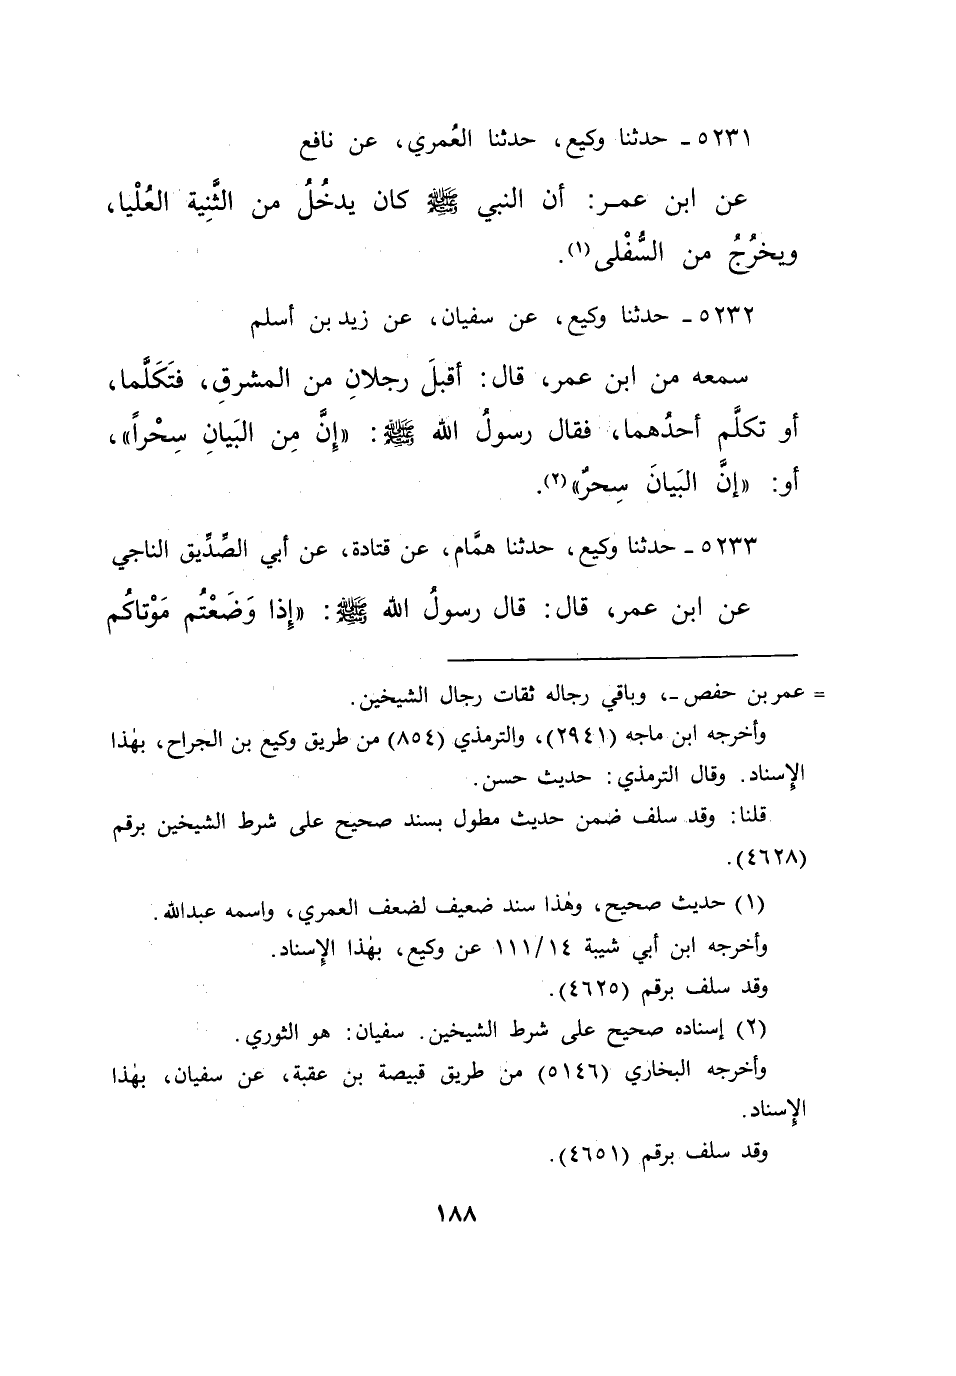 ٥٢٣١ ـ حدثنا وكيع، حدثنا العُمري، عن نافع
عن ابن عمـر: أن النبي ﷺ كان يدخُلُ من الثَّنِية العُلْيا،
ويخرُجُ من السُّفْلى(١).
٥٢٣٢ ـ حدثنا وكيع، عن سفيان، عن زيد بن أسلم
سمعه من ابن عمر، قال: أقبلَ رجلانِ من المشرقِ، فتَكَلَّما،
أو تكلَّم أحدُهما، فقال رسولُ الله ﷺ: «إِنَّ مِن البَيانِ سِحْراً»،
أو: «إنَّ البَيانَ سِحرٌ»(٢).
٥٢٣٣ ـ حدثنا وكيع، حدثنا همَّام، عن قتادة، عن أبي الصِّدِّيق الناجي
عن ابن عمر، قال: قال رسولُ الله ﷺ: «إِذا وَضَعْتُم مَوْتاكُم
= عمر بن حفص ـ، وباقي رجاله ثقات رجال الشيخين.
وأخرجه ابن ماجه (٢٩٤١)، والترمذي (٨٥٤) من طريق وكيع بن الجراح، بهٰذا
الإِسناد. وقال الترمذي: حديث حسن.
قلنا: وقد سلف ضمن حديث مطول بسند صحيح على شرط الشيخين برقم
(٤٦٢٨).
(١) حديث صحيح، وهٰذا سند ضعيف لضعف العمري، واسمه عبدالله.
وأخرجه ابن أبي شيبة ١١١/١٤ عن وكيع، بهٰذا الإِسناد.
وقد سلف برقم (٤٦٢٥).
(٢) إسناده صحيح على شرط الشيخين. سفيان: هو الثوري.
وأخرجه البخاري (٥١٤٦) من طريق قبيصة بن عقبة، عن سفيان، بهٰذا
الإِسناد.
وقد سلف برقم (٤٦٥١).
١٨٨